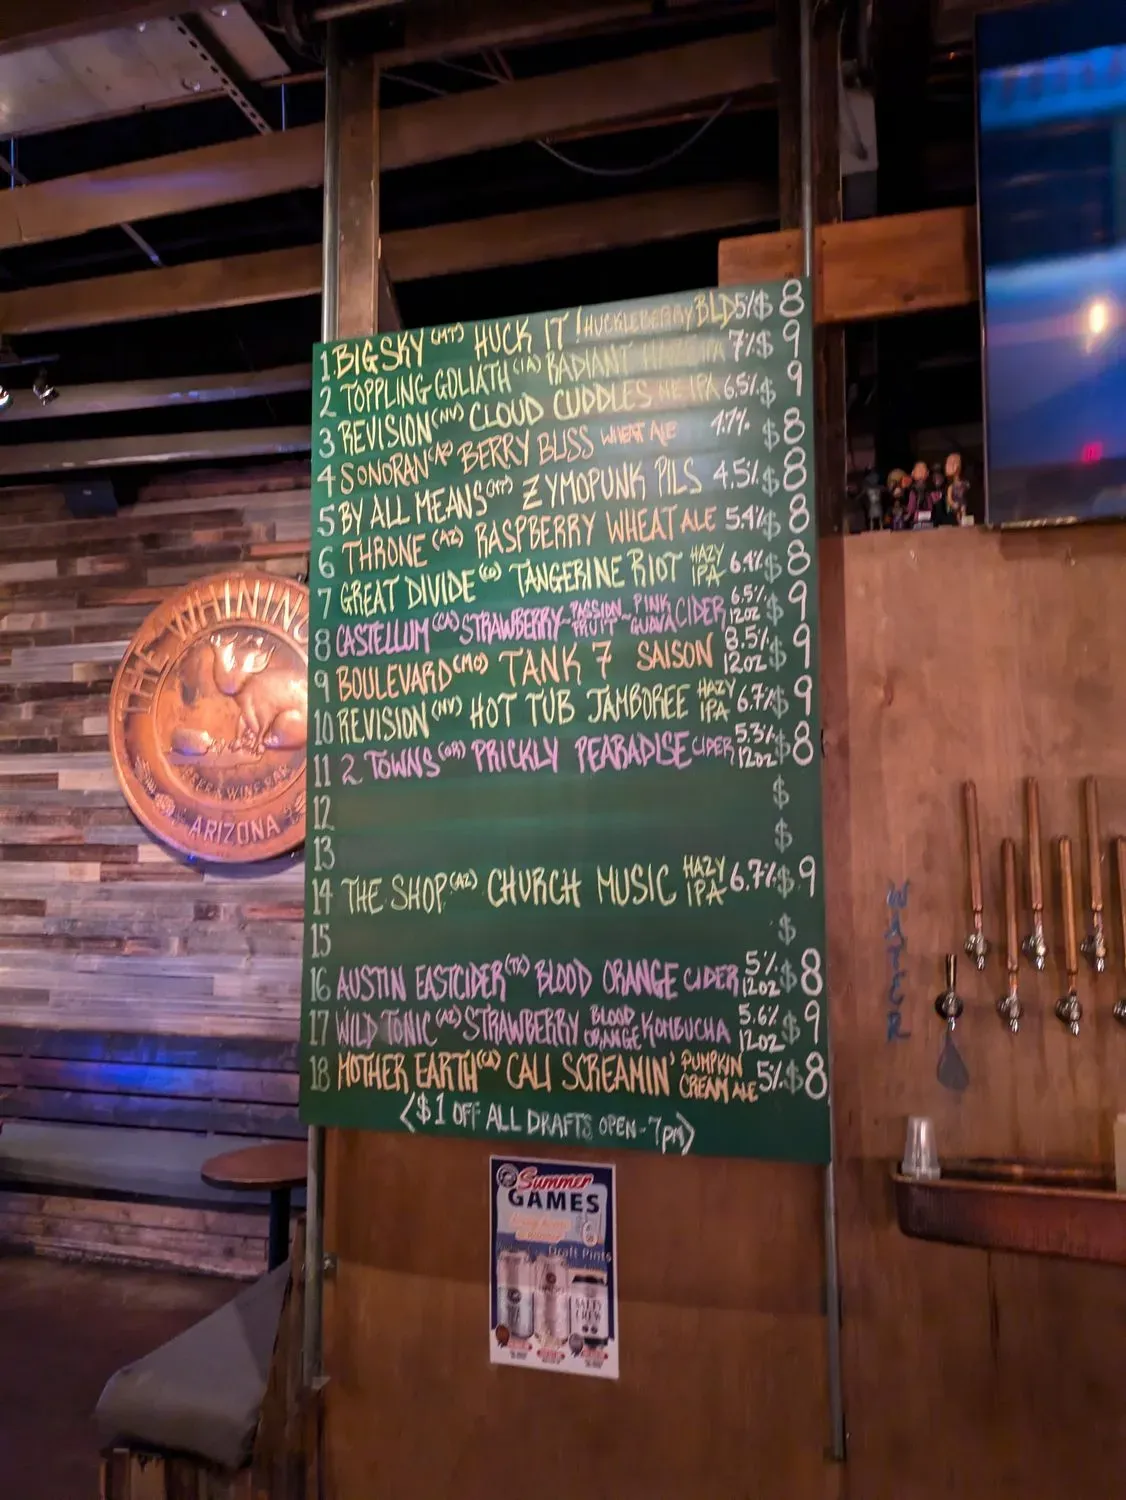 1. BIG SKY (MT) HUCK IT! HUCKLEBERRY BLD 5% $ 8
2 TOPPLING GOLIATH (IA) RADIANT HAZE IPA 7% $ 9
3 REVISION (NV) CLOUD CUDDLES NE IPA 6.5% $ 9
4 SONORAN (AZ) BERRY BLISS WHEAT ALE 4.7% $ 8
5 BY ALL MEANS (MT) ZYMOPUNK PILS 4.5% $ 8
6 THRONE (AZ) RASPBERRY WHEAT ALE 5.4% $ 8
7 GREAT DIVIDE (CO) TANGERINE RIOT HAZY IPA 6.4% $ 8
8 CASTELLUM (CA) STRAWBERRY-PASSION FRUIT-PINK GUAVA CIDER 6.5% 12OZ $ 9
9 BOULEVARD (MO) TANK 7 SAISON 8.5% 12OZ $ 9
10 REVISION (NV) HOT TUB JAMBOREE HAZY IPA 6.7% $ 9
11 2 TOWNS (OR) PRICKLY PEARADISE CIDER 5.3% 12OZ $ 8
12 $
13 $
14 THE SHOP (AZ) CHURCH MUSIC HAZY IPA 6.7% $ 9
15 $
16 AUSTIN EASTCIDER (TX) BLOOD ORANGE CIDER 5% 12OZ $ 8
17 WILD TONIC (AZ) STRAWBERRY BLOOD ORANGE KOMBUCHA 5.6% 12OZ $ 9
18 MOTHER EARTH (CA) CALI SCREAMIN' PUMPKIN CREAM ALE 5% $ 8
<$1 OFF ALL DRAFTS OPEN-7pm>
THE WHINING
BEER & WINE BAR
ARIZONA
WATER
Summer
GAMES
Draft Pints
SALTY
CREW